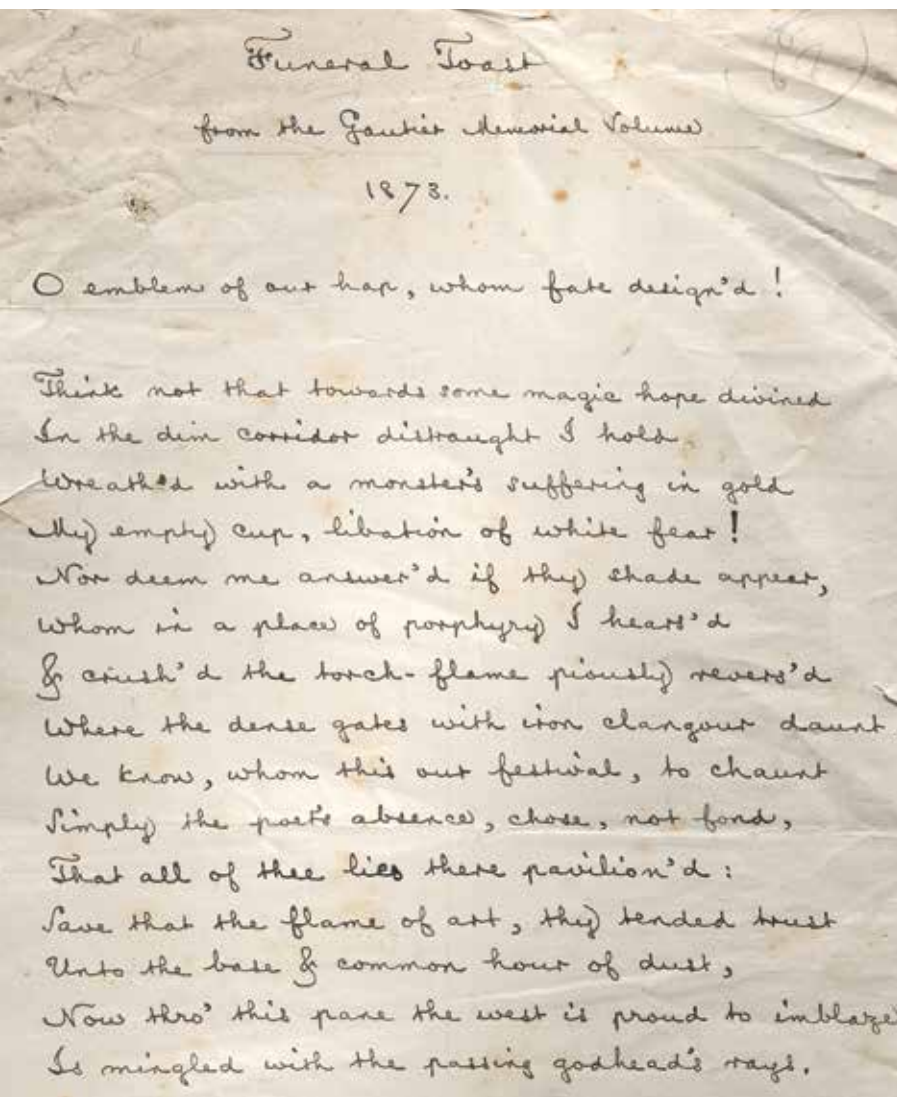 Funeral Toast
from the Gautier Memorial Volume
1873.
O emblem of our hap, whom fate design'd!
Think not that towards some magic hope divined
In the dim corridor distraught I hold
Wreath'd with a monster's suffering in gold
My empty cup, libation of white fear!
Nor deem me answer'd if thy shade appear,
Whom in a place of porphyry I hears'd
& crush'd the torch-flame piously revers'd
Where the dense gates with iron clangour daunt
We know, whom this our festival, to chaunt
Simply the poet's absence, chose, not fond,
That all of thee lies there pavilion'd:
Save that the flame of art, thy tended trust
Unto the base & common hour of dust,
Now thro' this pane the west is proud to imblaze
Is mingled with the passing godhead's rays.